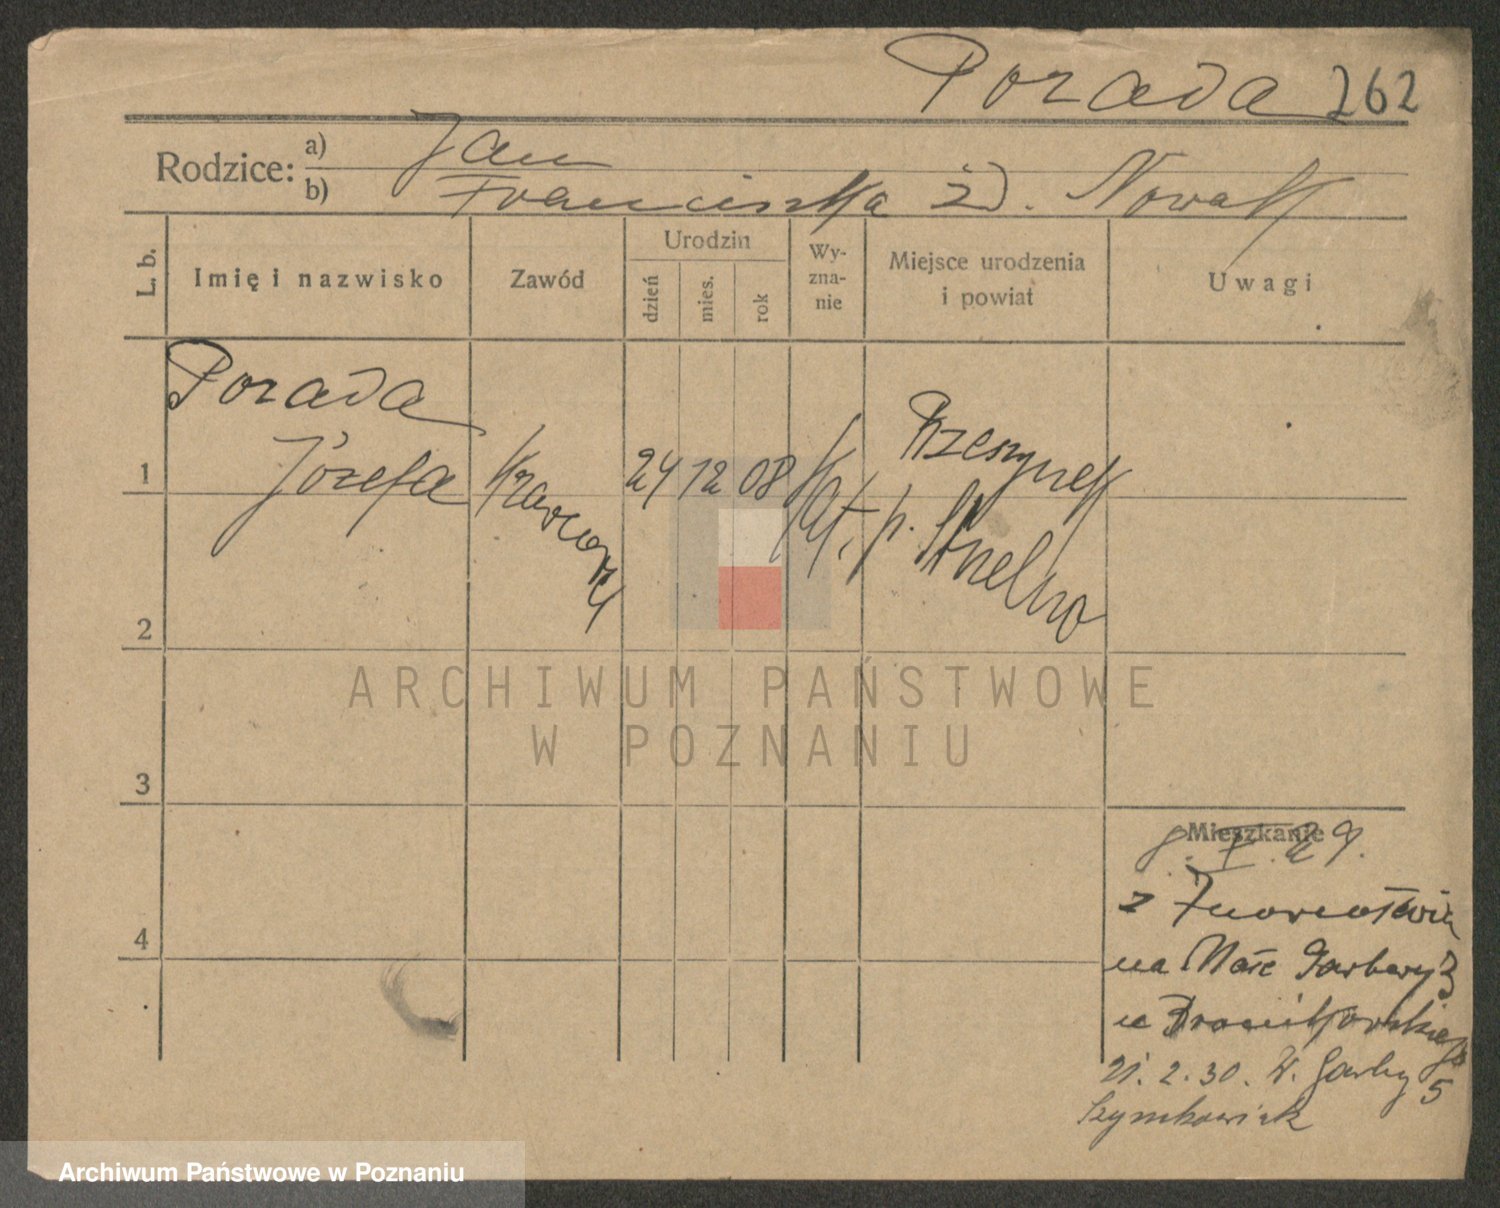 Porada 262
Rodzice: a) Jan
b) Franciszka z d. Nowak
L. b.
Imię i nazwisko
Zawód
Urodzin
dzień
mies.
rok
Wy-
zna-
nie
Miejsce urodzenia
i powiat
Uwagi
Porada
1 Józefa
24 12 08 Kat.
p. Strzelno
2
3
4
Mieszkanie
8. V. 29.
z
na Małe Garbary 3
u
21. 2. 30. W. Garbary 5
Szymkowiak
ARCHIWUM PAŃSTWOWE
W POZNANIU
Archiwum Państwowe w Poznaniu